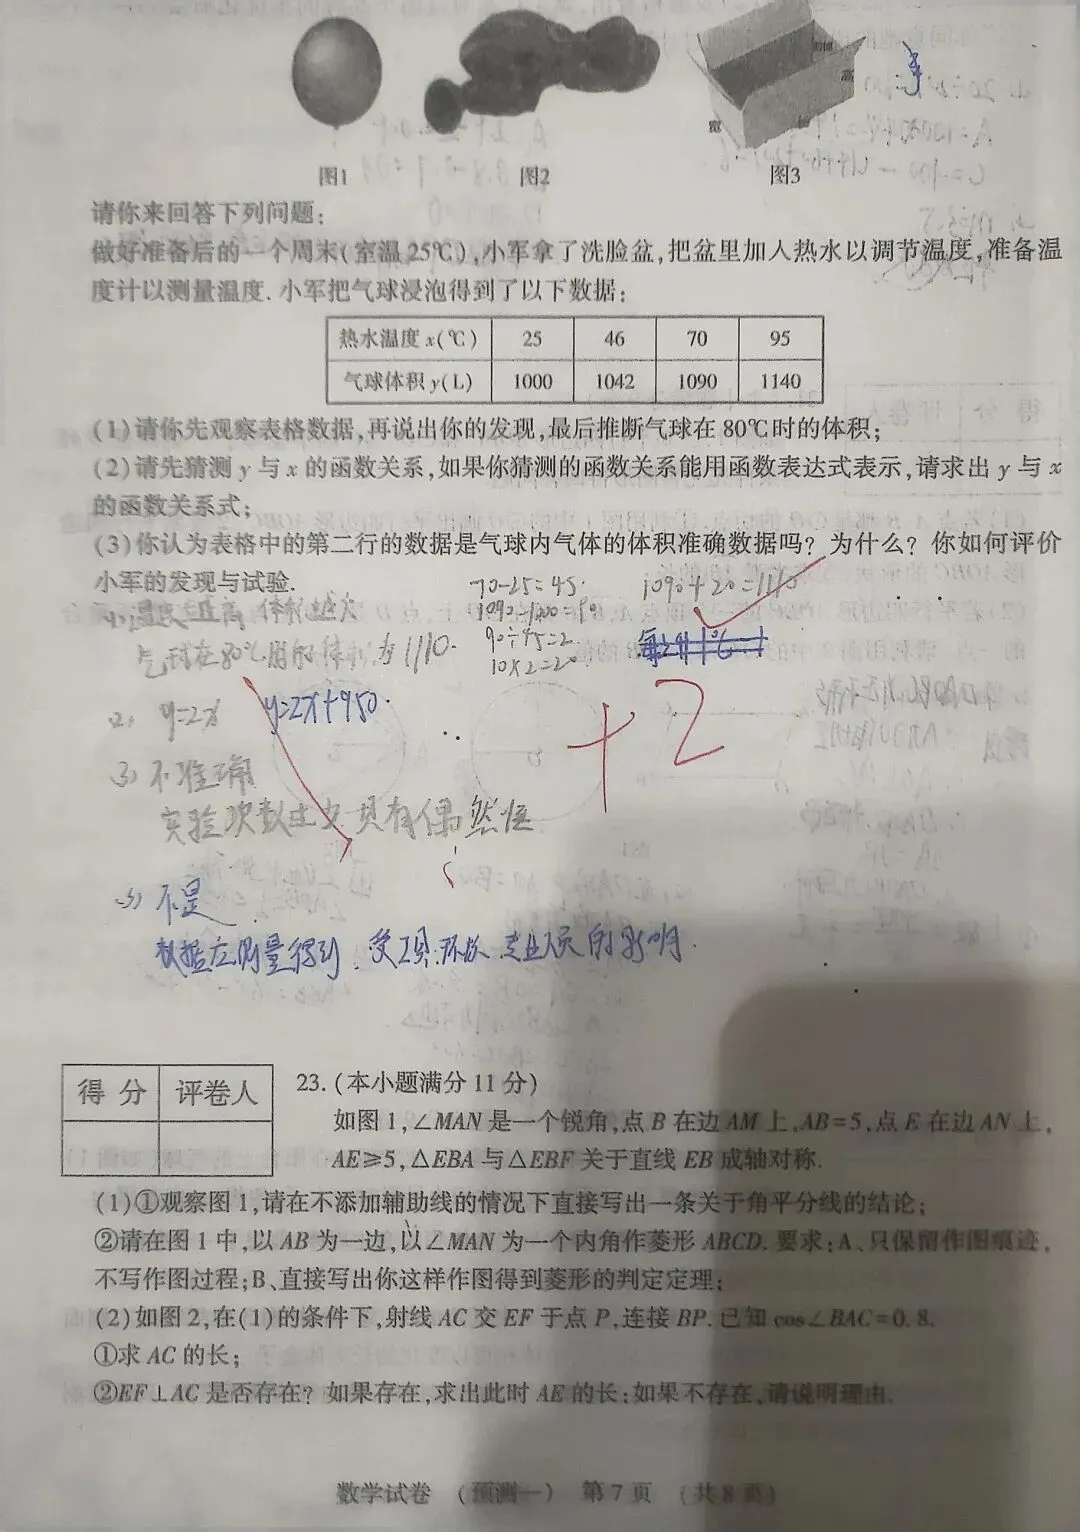 图1
图2
图3
宽
高
请你来回答下列问题:
做好准备后的一个周末(室温25℃),小军拿了洗脸盆,把盆里加入热水以调节温度,准备温
度计以测量温度.小军把气球浸泡得到了以下数据:
热水温度x(℃) 25 46 70 95
气球体积y(L) 1000 1042 1090 1140
(1)请你先观察表格数据,再说出你的发现,最后推断气球在80℃时的体积;
(2)请先猜测y与x的函数关系,如果你猜测的函数关系能用函数表达式表示,请求出y与x
的函数关系式;
(3)你认为表格中的第二行的数据是气球内气体的体积准确数据吗?为什么?你如何评价
小军的发现与试验.
70-25=45.
1090+20=1110
温度越高,体积越大
1090-1000=90
气球在80℃时的体积为1110.
90÷45=2
10×2=20
+2
y=2x
y=2x+950.
不准确
实验次数过少具有偶然性
不是
数据在测量得到.受工具.环境
的影响.
得分 评卷人
23.(本小题满分11分)
如图1,∠MAN是一个锐角,点B在边AM上,AB=5,点E在边AN上,
AE≥5,△EBA与△EBF关于直线EB成轴对称.
(1)①观察图1,请在不添加辅助线的情况下直接写出一条关于角平分线的结论;
②请在图1中,以AB为一边,以∠MAN为一个内角作菱形ABCD.要求:A、只保留作图痕迹,
不写作图过程;B、直接写出你这样作图得到菱形的判定定理;
(2)如图2,在(1)的条件下,射线AC交EF于点P,连接BP.已知cos∠BAC=0.8.
①求AC的长;
②EF⊥AC是否存在?如果存在,求出此时AE的长;如果不存在,请说明理由.
数学试卷 (预测一) 第7页 (共8页)